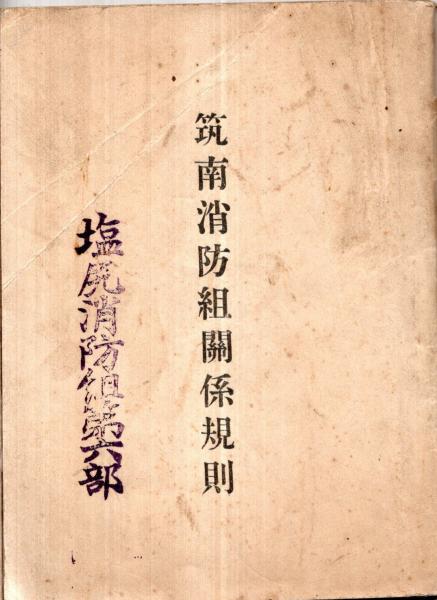 筑南消防組關係規則
塩尻消防組第六部